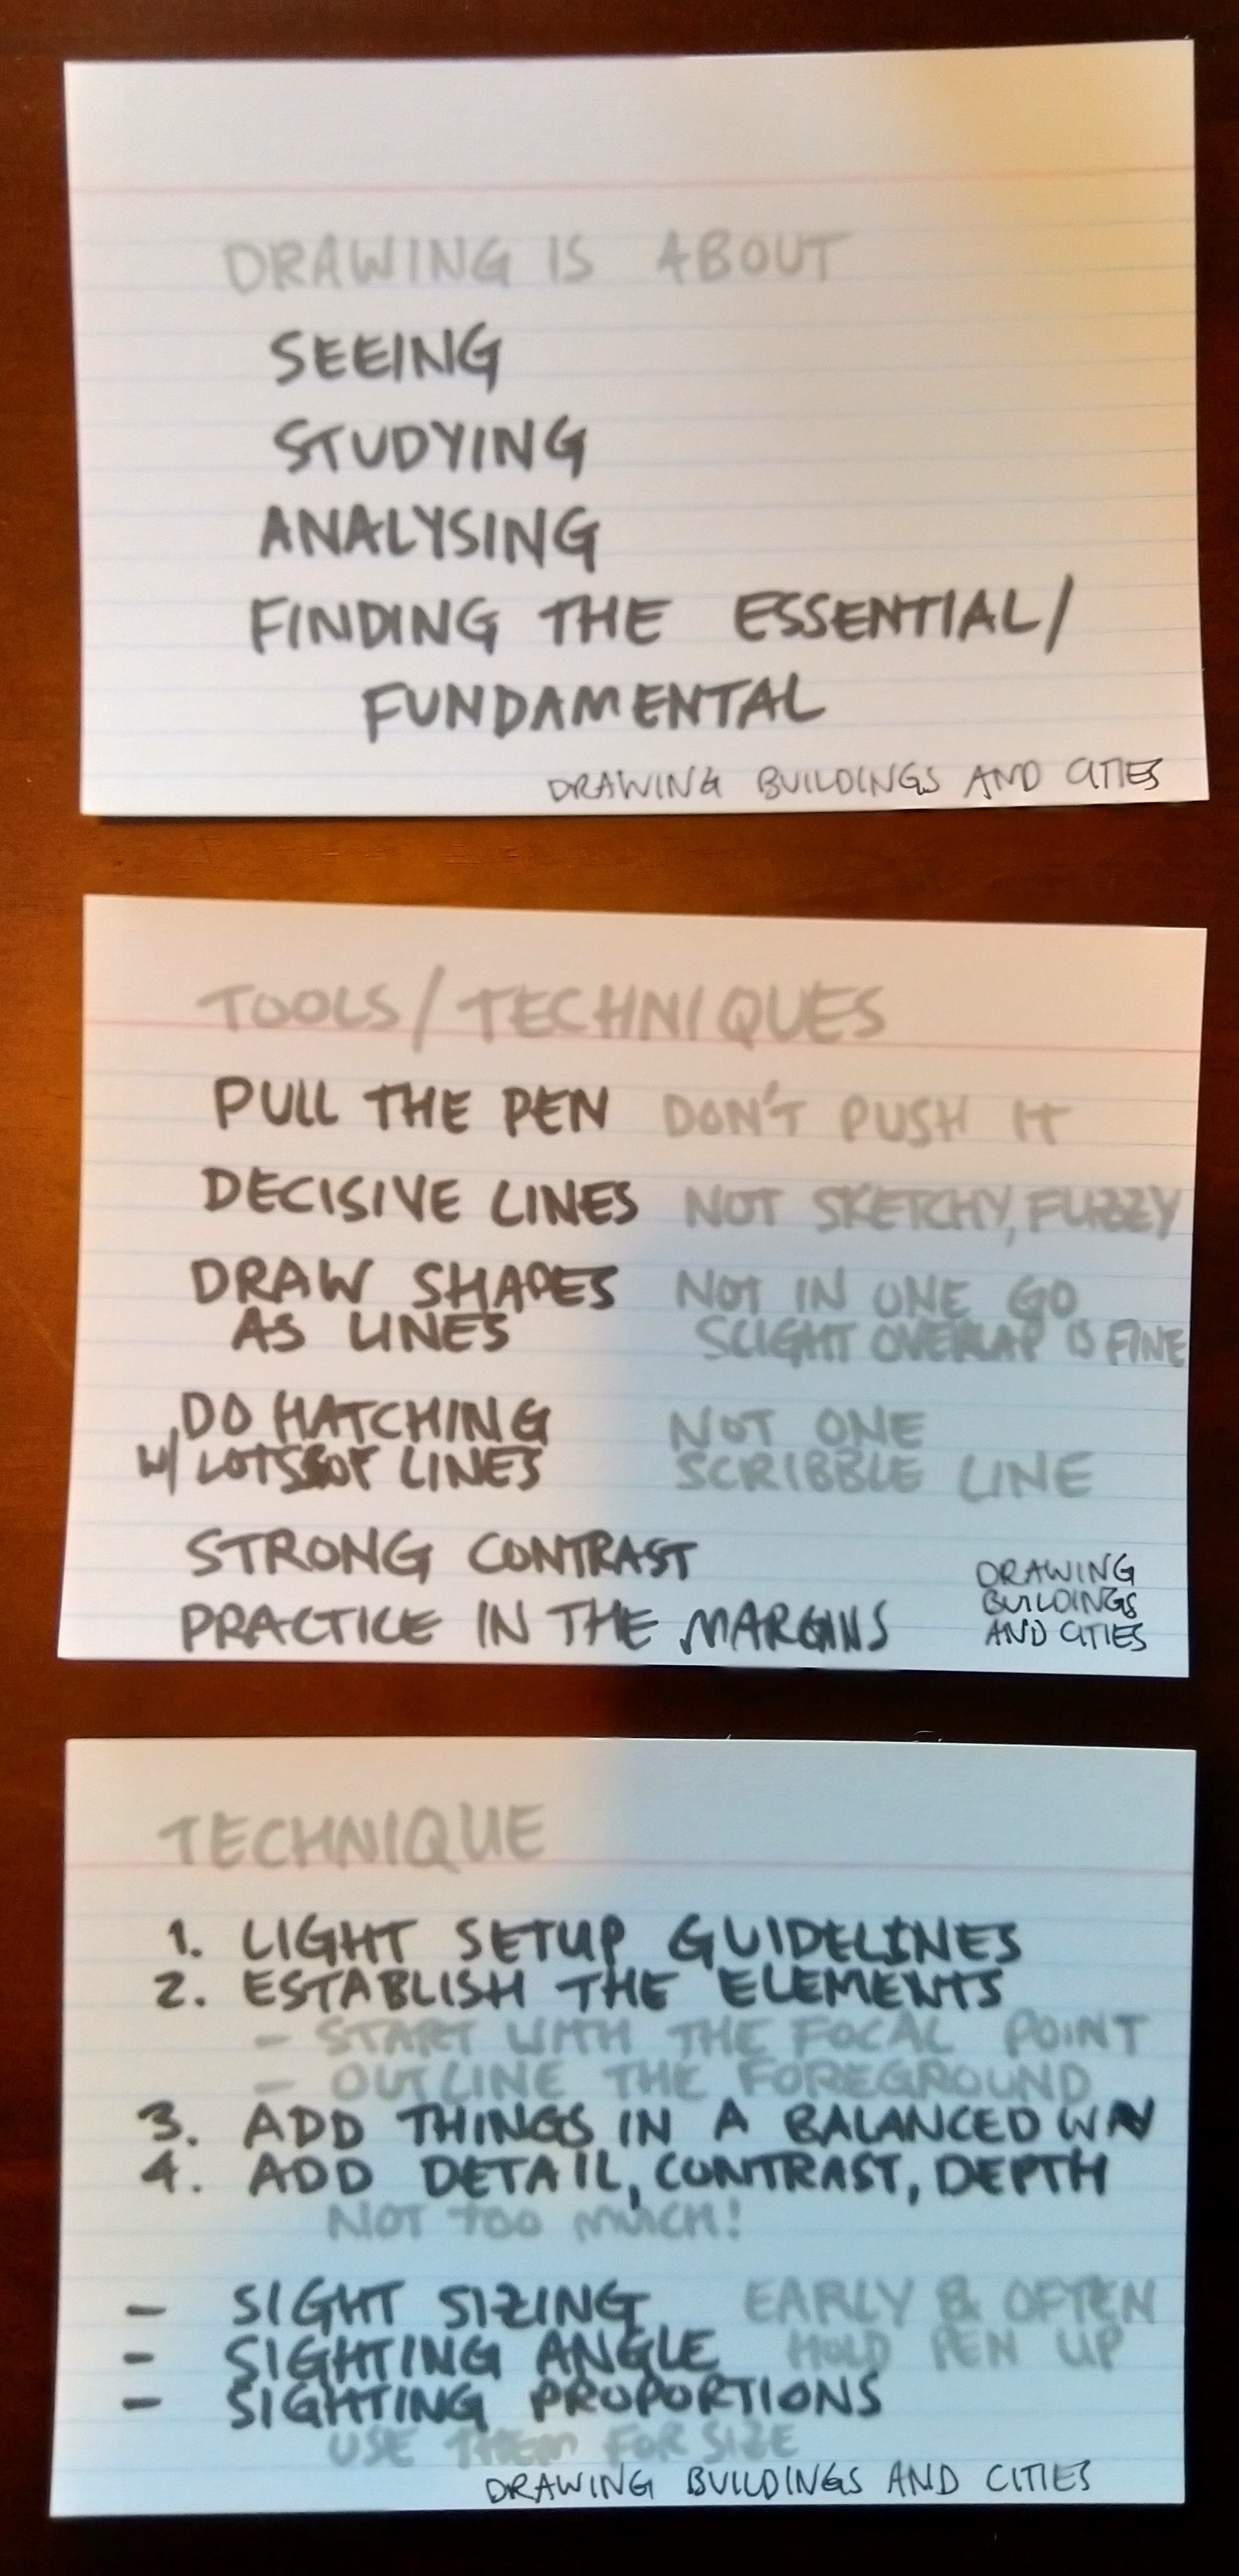 DRAWING IS ABOUT
SEEING
STUDYING
ANALYSING
FINDING THE ESSENTIAL/
FUNDAMENTAL
DRAWING BUILDINGS AND CITIES
TOOLS/TECHNIQUES
PULL THE PEN DON'T PUSH IT
DECISIVE LINES NOT SKETCHY, FUZZY
DRAW SHAPES NOT IN ONE GO
AS LINES SLIGHT OVERLAP IS FINE
DO HATCHING NOT ONE
W/ LOTS OF LINES SCRIBBLE LINE
STRONG CONTRAST
PRACTICE IN THE MARGINS
DRAWING
BUILDINGS
AND CITIES
TECHNIQUE
1. LIGHT SETUP GUIDELINES
2. ESTABLISH THE ELEMENTS
- START WITH THE FOCAL POINT
- OUTLINE THE FOREGROUND
3. ADD THINGS IN A BALANCED WAY
4. ADD DETAIL, CONTRAST, DEPTH
NOT TOO MUCH!
- SIGHT SIZING EARLY & OFTEN
- SIGHTING ANGLE HOLD PEN UP
- SIGHTING PROPORTIONS
USE THEM FOR SIZE
DRAWING BUILDINGS AND CITIES